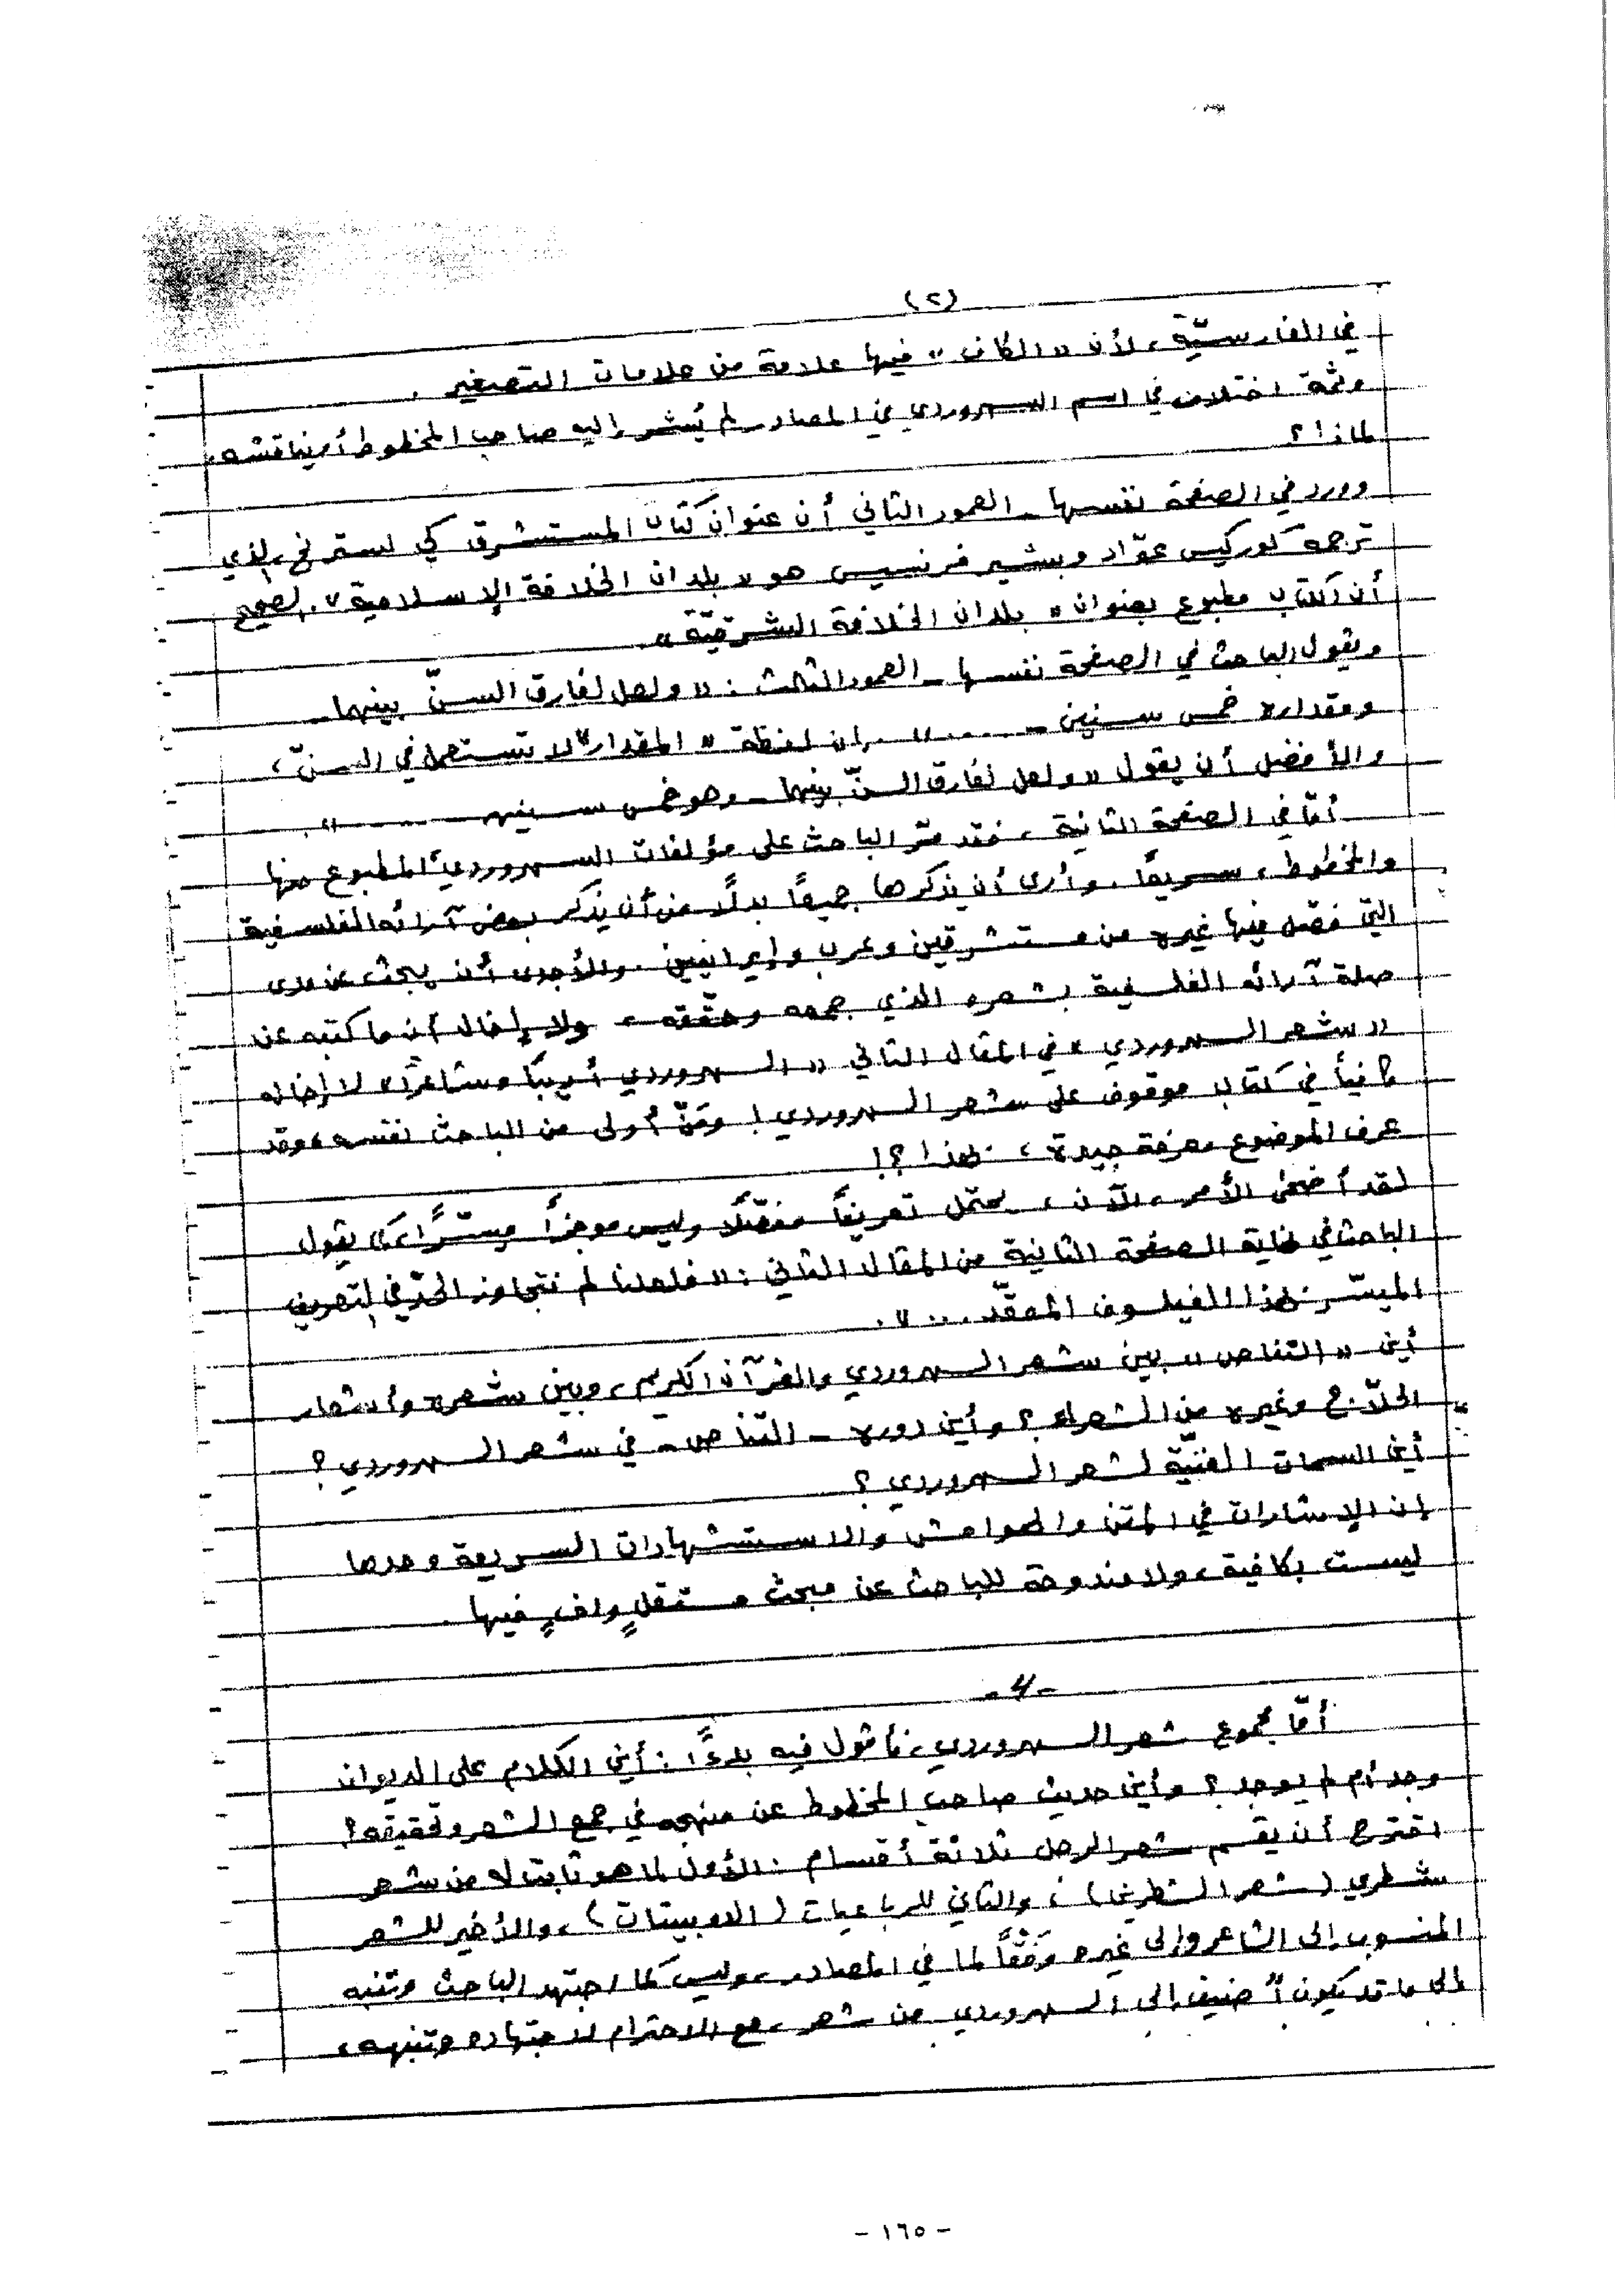 (٢)
في الفارسيّة، لأن «الكاف» فيها علامة من علامات التصغير.
وثمة اختلاف في اسم السهروردي في المصادر لم يُشر إليه صاحب المخطوط أو يناقشه،
لماذا؟
وورد في الصفحة نفسها - العمود الثاني أن عنوان كتاب المستشرق كي لسترنج، الذي
ترجمه كوركيس عوّاد وبشير فرنسيس هو «بلدان الخلافة الإسلامية». الصحيح
أن الكتاب مطبوع بعنوان «بلدان الخلافة الشرقيّة».
ويقول الباحث في الصفحة نفسها - العمود الثالث: «ولعل لفارق السنّ بينهما -
ومقداره خمس سنين - ....». إن لفظة «المقدار» لا تستعمل في السنّ،
والأفضل أن يقول «ولعل لفارق السنّ بينهما - وهو خمس سنين - ....».
أمّا في الصفحة الثانية، فقد مرّ الباحث على مؤلفات السهروردي، المطبوع منها
والمخطوط، سريعًا. وأرى أن يذكرها جميعًا بدلًا من أن يذكر بعض آرائه الفلسفية
التي فصّل فيها غيره من مستشرقين وعرب وإيرانيين. والأجدى أن يبحث عن مدى
صلة آرائه الفلسفية بشعره الذي جمعه وحقّقه، ولا إخال أن ما كتبه عن
«شعر السهروردي» في المقال الثاني «السهروردي أديبًا وشاعرًا» لا إخاله
كافيًا في كتاب موقوف على شعر السهروردي! ومَنْ أولى من الباحث نفسه، وقد
عرف الموضوع معرفة جيدة، بهذا؟!
لقد أضحى الأمر، الآن، يحتمل تعريفًا مفصّلًا وليس موجزًا ميسّرًا، يقول
الباحث في نهاية الصفحة الثانية من المقال الثاني: «فلعلنا لم نتجاوز الحدّ في التعريف
الميسّر بهذا الفيلسوف المعقّد...».
أين «التناص» بين شعر السهروردي والقرآن الكريم، وبين شعره وأشعار
الحلّاج وغيره من الشعراء؟ وأين دوره - التناص - في شعر السهروردي؟
أين السمات الفنيّة لشعر السهروردي؟
إن الإشارات في المتن والهوامش والاستشهادات السريعة وحدها
ليست بكافية، ولا مندوحة للباحث عن مبحث مستقلٍ وافٍ فيها.
أمّا مجموع شعر السهروردي، فأقول فيه بدءًا: أين الكلام على الديوان
وجد أم لم يوجد؟ وأين حديث صاحب المخطوط عن منهجه في جمع الشعر وتحقيقه؟
اقترح أن يقسم شعر الرجل ثلاثة أقسام: الأول لما هو ثابت له من شعر
شطري (شعر الشطرين)، والثاني للرباعيات (الدوبيتات)، والأخير للشعر
المنسوب إلى الشاعر وإلى غيره وَفْقًا لما في المصادر، وليس كما اجتهد الباحث وتنبه
إلى ما قد يكون أُضيف إلى السهروردي من شعر، مع الاحترام لاجتهاده وتنبهه،
- ١٦٥ -